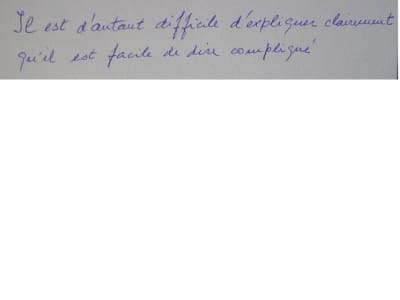 Il est d'autant difficile d'expliquer clairement
qu'il est facile de dire compliqué